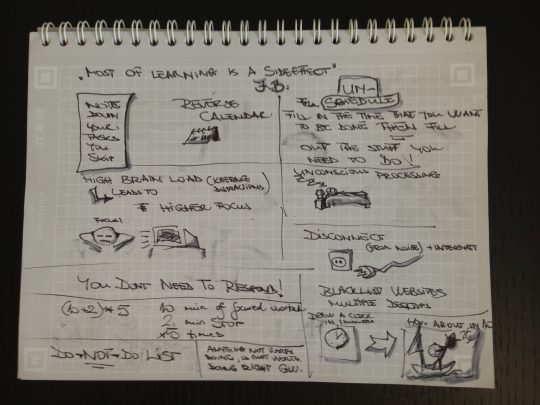 "MOST OF LEARNING IS A SIDEEFFECT"
J.B.
NOTE
DOWN
YOUR
TASKS
YOU
SKIP
REVERSE
CALENDAR
UN-
SCHEDULE
FILL IN THE TIME THAT YOU WANT
TO BE DONE THEN FILL
OUT THE STUFF YOU
NEED TO DO!
HIGH BRAIN LOAD (KEEPING
LEADS TO
HIGHER FOCUS
FOCUS!
UNCONSCIOUS PROCESSING
ZZZ
DISCONNECT
(FROM NOISE) + INTERNET
BLACKLIST WEBSITES
MULTIPLE DESKTOPS
YOU DONT NEED TO RESPOND!
(10+2)*5
10 min of focused work
2 min STOP
x5 times
DO-NOT-DO LIST
ANYTHING NOT WORTH
DOING, IS NOT WORTH
DOING RIGHT
DRAW A CLOCK
IN 1 minute
ABOUT